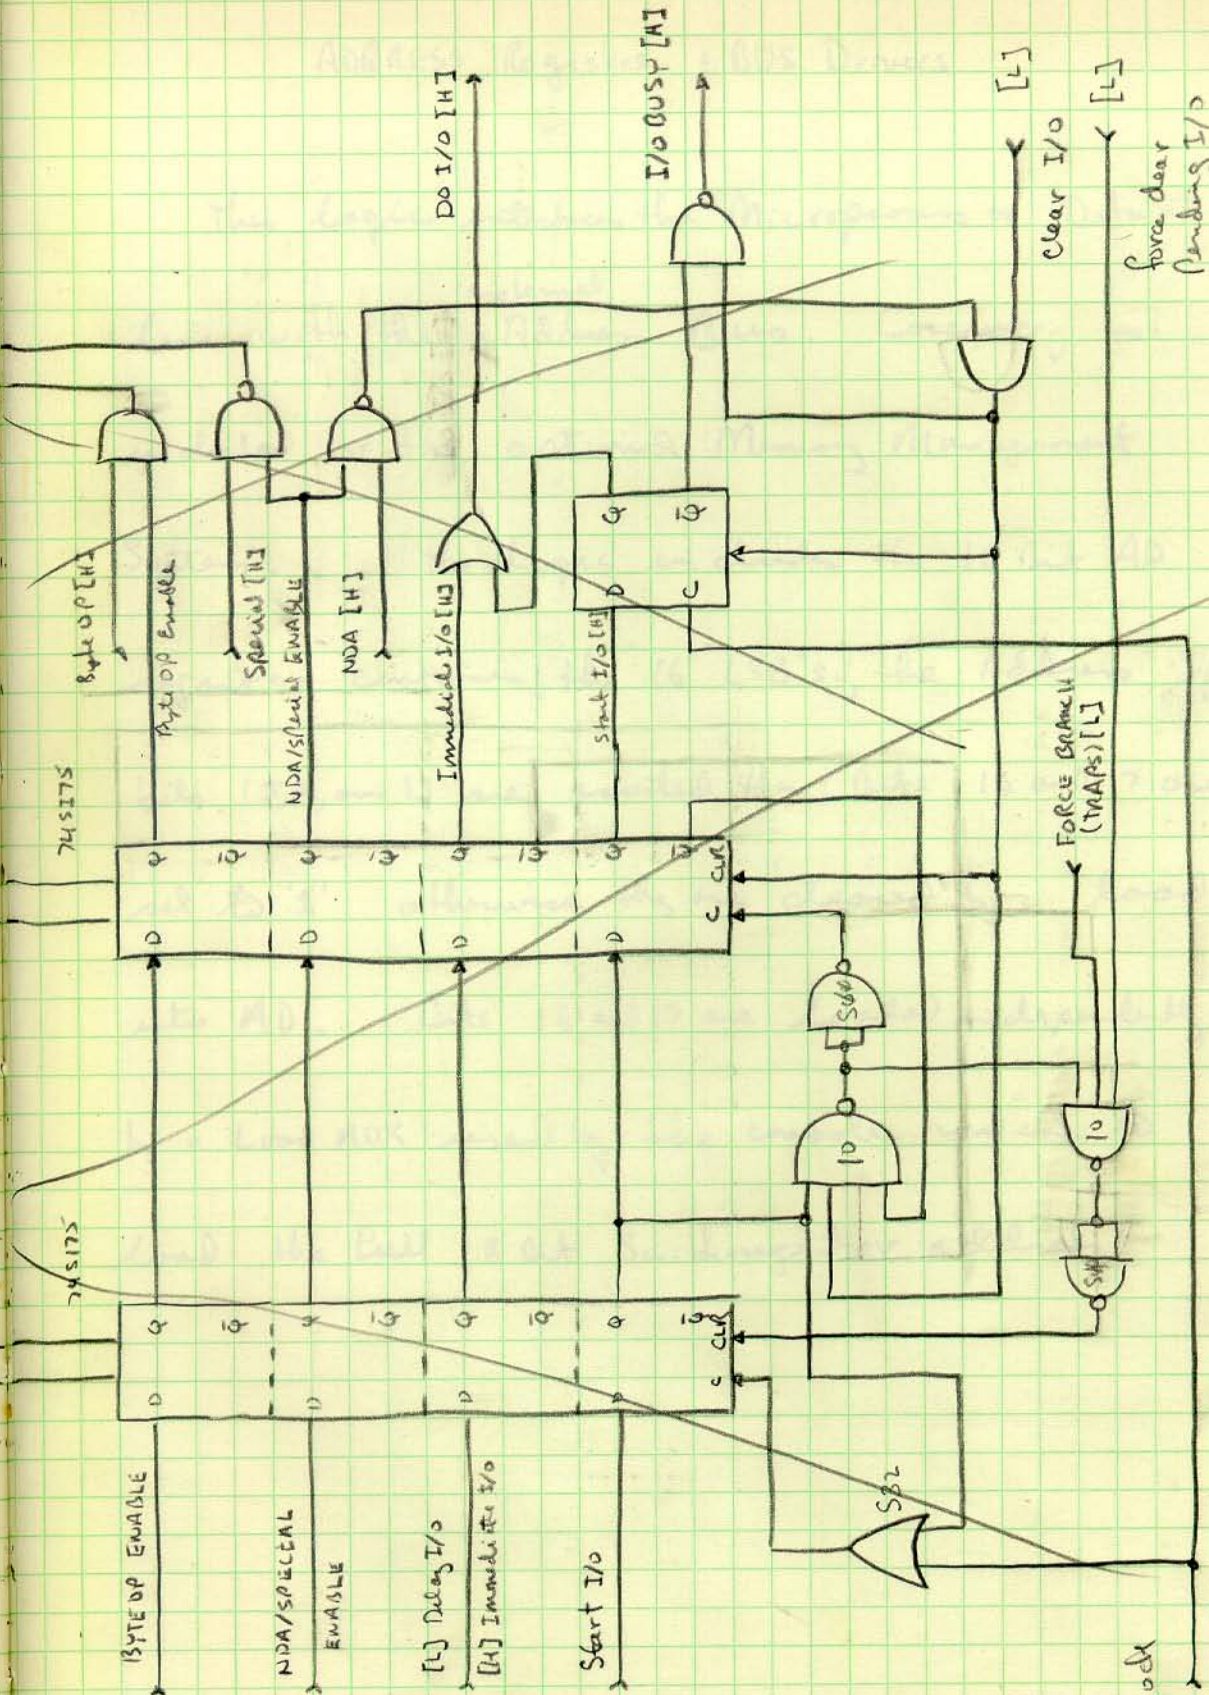 BYTE OP ENABLE
NDA/SPECIAL
ENABLE
[L] Delay I/O
[H] Immediate I/O
Start I/O
74S175
D Q
Q̄
D Q
Q̄
D Q
Q̄
D Q
Q̄
C CLR
74S175
D Q
Q̄
D Q
Q̄
D Q
Q̄
D Q
Q̄
C CLR
S32
10
S00
10
FORCE BRANCH
(TRAPS) [L]
Byte OP [H]
Byte OP Enable
Special [H]
NDA/Special ENABLE
NDA [H]
Immediate I/O [H]
Start I/O [H]
D Q
C Q̄
DO I/O [H]
I/O BUSY [H]
[L]
Clear I/O
[L]
force clear
Pending I/O